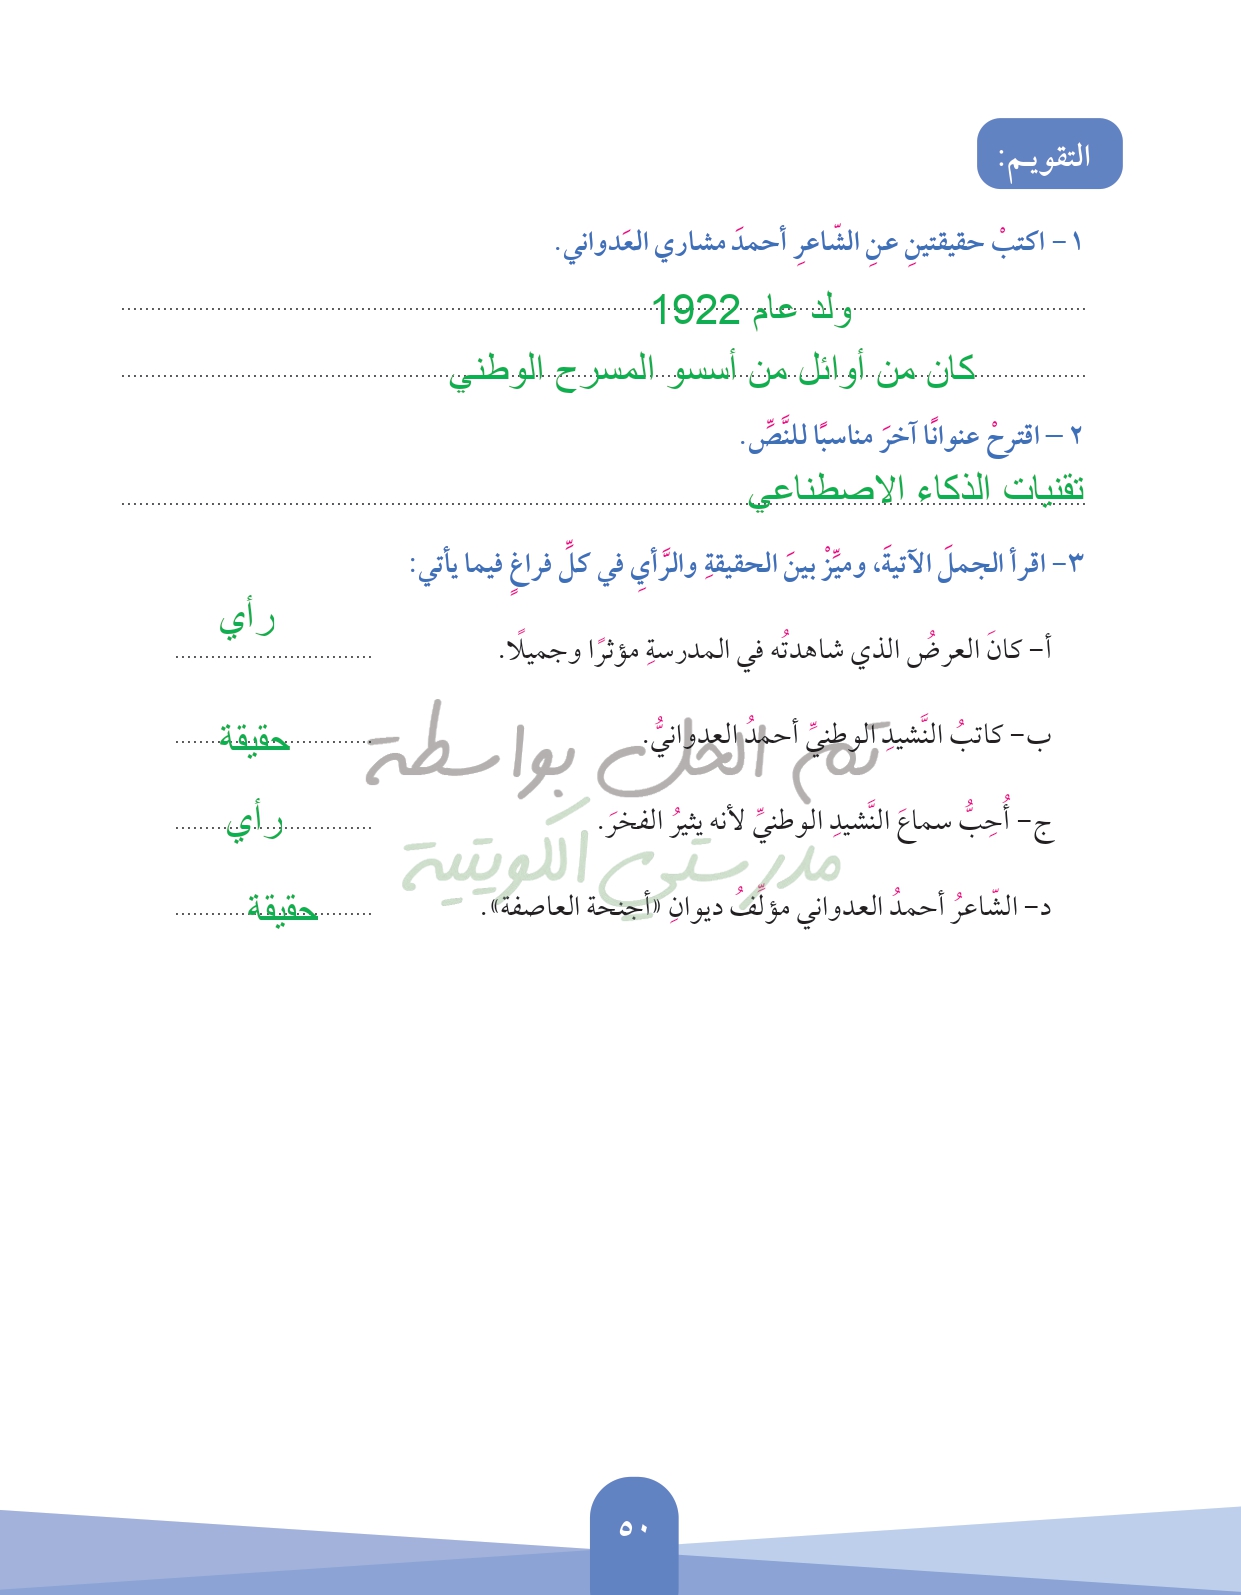 التقويم:
١- اكتبْ حقيقتينِ عنِ الشّاعرِ أحمدَ مشاري العَدواني.
ولد عام 1922
كان من أوائل من أسسو المسرح الوطني
٢ – اقترحْ عنوانًا آخرَ مناسبًا للنَّصِّ.
تقنيات الذكاء الإصطناعي
٣- اقرأ الجملَ الآتيةَ، وميِّزْ بينَ الحقيقةِ والرَّأيِ في كلِّ فراغٍ فيما يأتي:
أ- كانَ العرضُ الذي شاهدتُه في المدرسةِ مؤثرًا وجميلًا. رأي
ب- كاتبُ النَّشيدِ الوطنيِّ أحمدُ العدوانيُّ. حقيقة
تم الحل بواسطة
ج- أُحِبُّ سماعَ النَّشيدِ الوطنيِّ لأنه يثيرُ الفخرَ. رأي
مدرستي الكويتية
د- الشّاعرُ أحمدُ العدواني مؤلِّفُ ديوانِ «أجنحة العاصفة». حقيقة
٥٠